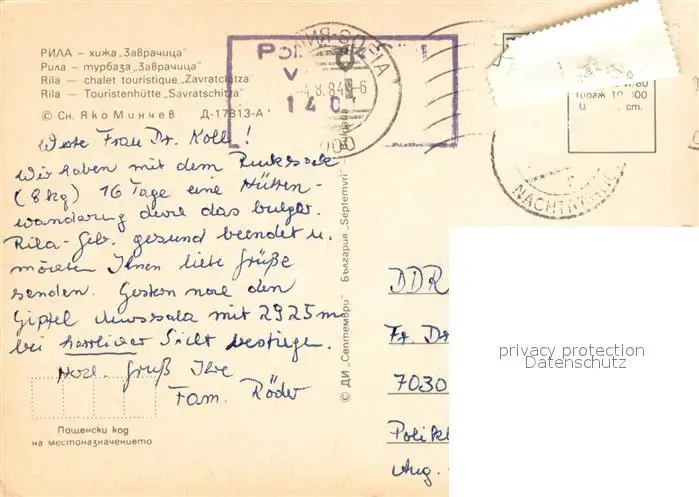 РИЛА – хижа „Заврачица"
Рила – турбаза „Заврачица"
Rila – chalet touristique „Zavratchitza"
Rila – Touristenhütte „Savratschitza"
© Сн. Яко Минчев Д-17813-А
Werte Frau Dr. Koll !
Wir haben mit dem Rucksack
(8kg) 16 Tage eine Hütten-
wanderung durch das bulgar.
Rila-Geb. gesund beendet u.
möchten Ihnen liebe Grüße
senden. Gestern noch den
Gipfel Mussala mit 2925m
bei herrlicher Sicht bestiegen.
Herzl. Gruß Ihre
Fam. Röder
Пощенски код
на местоназначението
© ДИ „Септември" България „Septemvri"
1 4 0
.8.84
000
Тираж 10 000
cm.
DDR
Fr. Dr
7030
Polikl
Aug.
privacy protection
Datenschutz